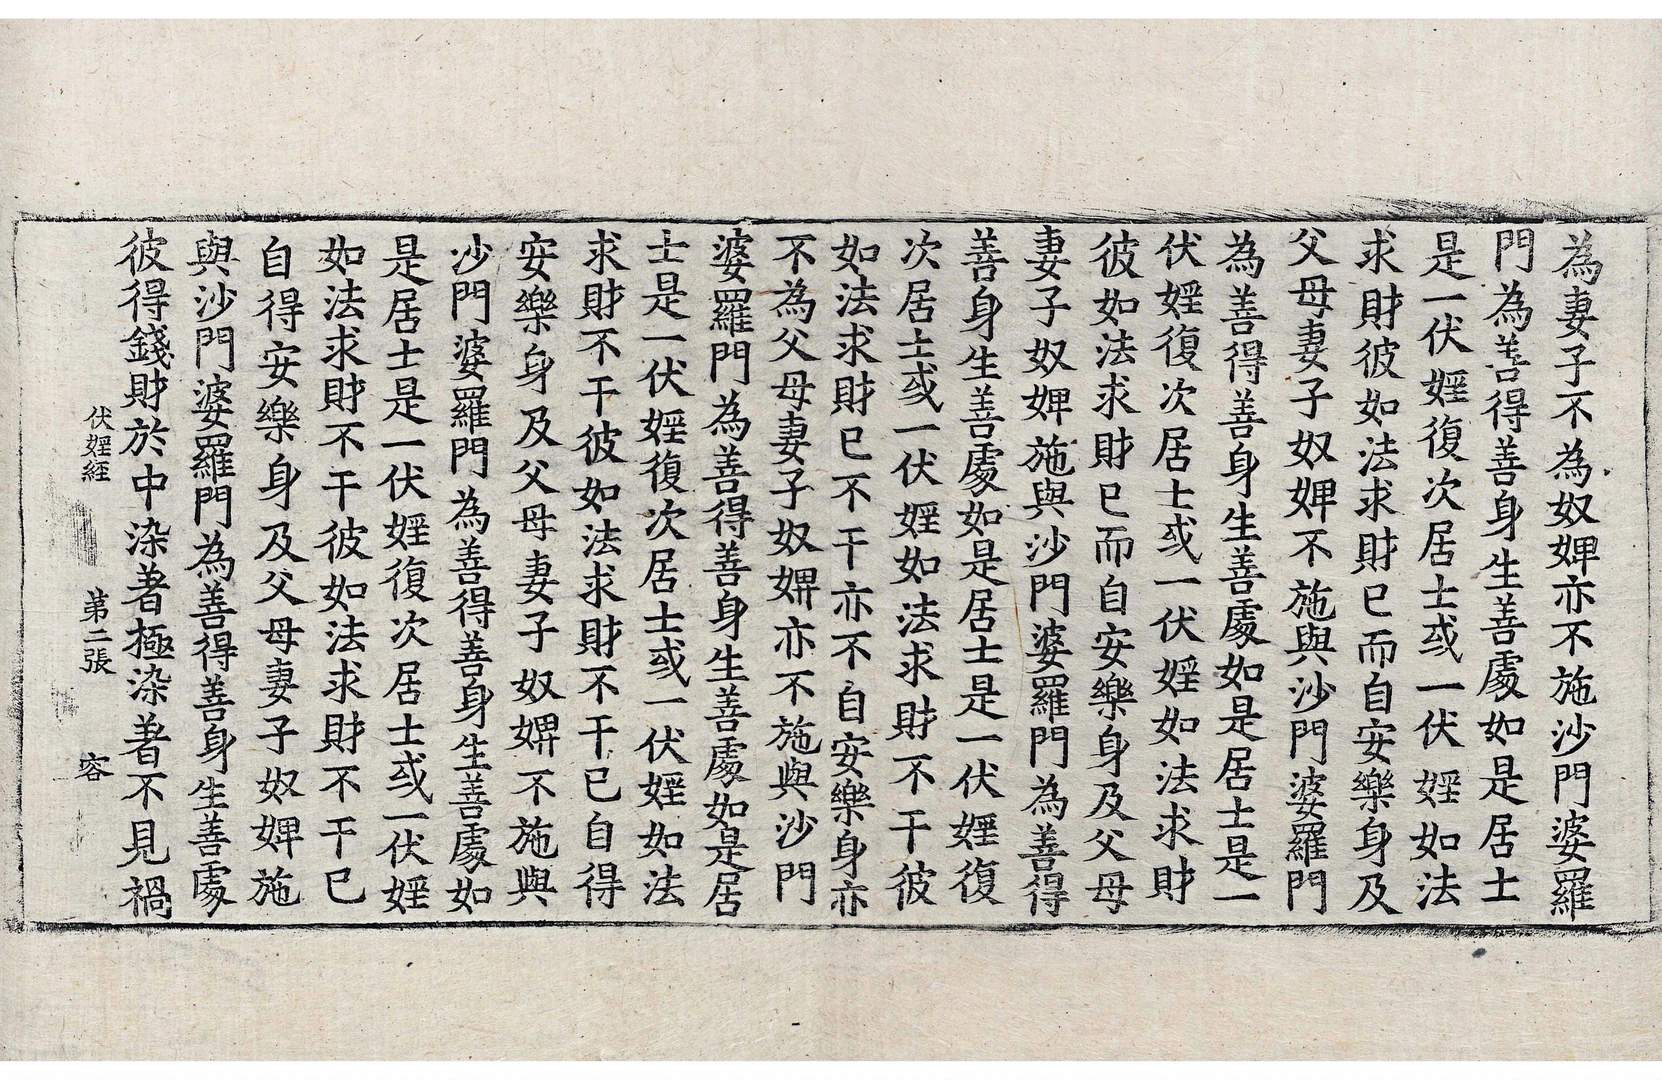 為妻子不為奴婢亦不施沙門婆羅
門為善得善身生善處如是居士
是一伏婬復次居士或一伏婬如法
求財彼如法求財已而自安樂身及
父母妻子奴婢不施與沙門婆羅門
為善得善身生善處如是居士是一
伏婬復次居士或一伏婬如法求財
彼如法求財已而自安樂身及父母
妻子奴婢施與沙門婆羅門為善得
善身生善處如是居士是一伏婬復
次居士或一伏婬如法求財不干彼
如法求財已不干亦不自安樂身亦
不為父母妻子奴婢亦不施與沙門
婆羅門為善得善身生善處如是居
士是一伏婬復次居士或一伏婬如法
求財不干彼如法求財不干已自得
安樂身及父母妻子奴婢不施與
沙門婆羅門為善得善身生善處如
是居士是一伏婬復次居士或一伏婬
如法求財不干彼如法求財不干已
自得安樂身及父母妻子奴婢施
與沙門婆羅門為善得善身生善處
彼得錢財於中染著極染著不見禍
伏婬經 第二張 容